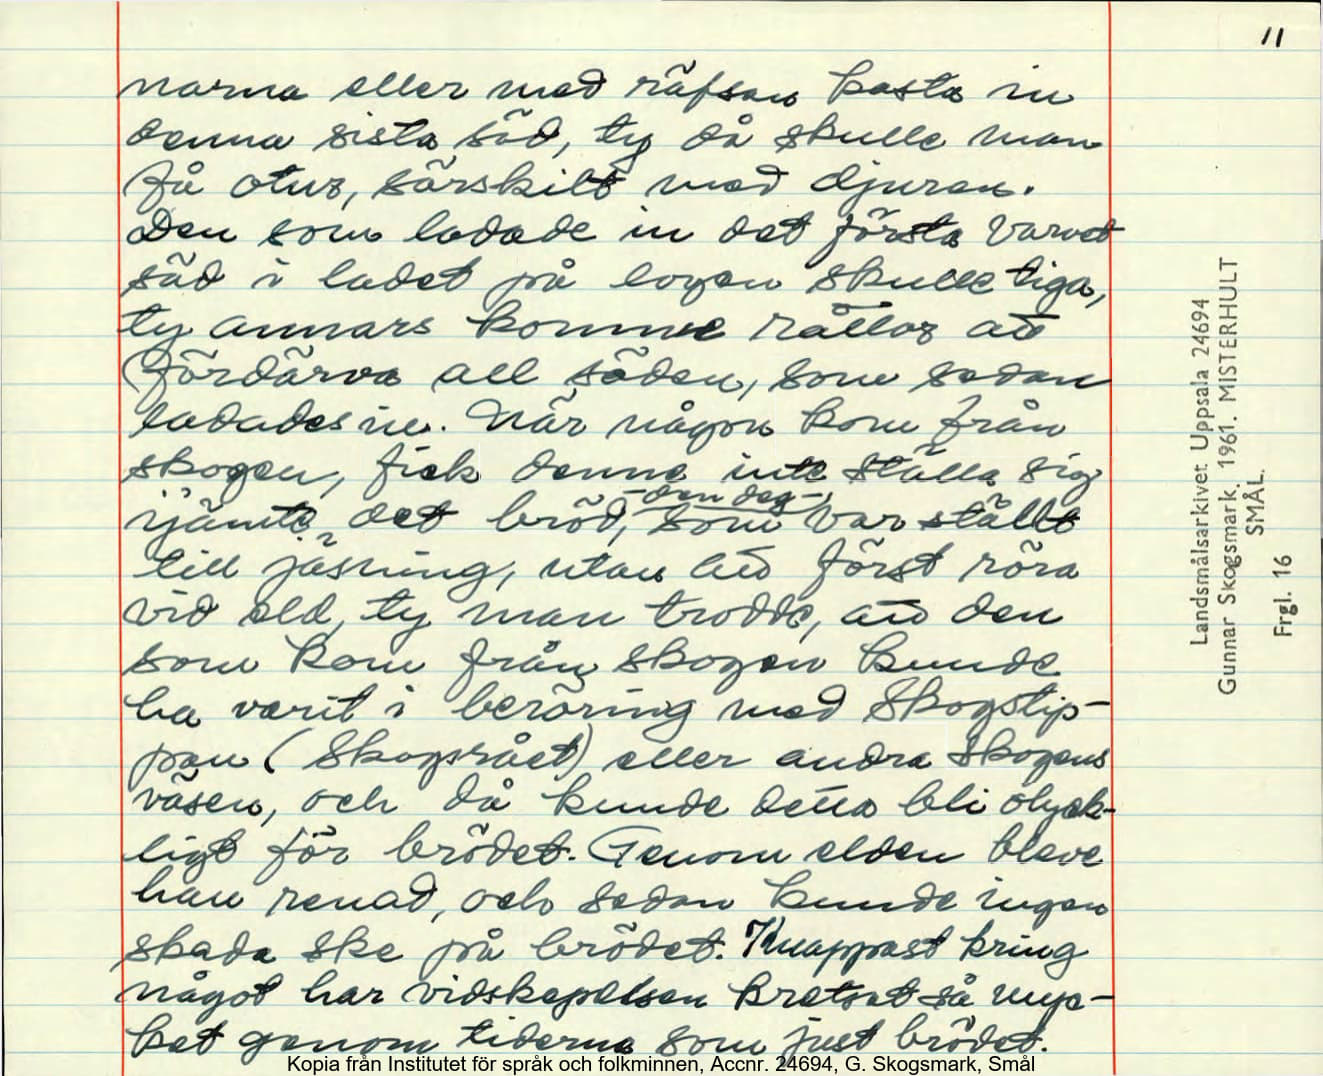 11
narna eller med räfsan kasta in
denna sista säd, ty då skulle man
få otur, särskilt med djuren.
Den som ladade in det första varvet
säd i ladet på logen skulle tiga,
ty annars komme råttor att
fördärva all säden, som sedan
ladades in. När någon kom från
skogen, fick denne inte ställa sig
-den deg-
ijämte det bröd, som var ställt
till jäsning, utan att först röra
vid eld, ty man trodde, att den
som kom från skogen kunde
ha varit i beröring med Skogstip-
pan (Skogsrået) eller andra skogens
väsen, och då kunde detta bli olyck-
ligt för brödet. Genom elden bleve
han renad, och sedan kunde ingen
skada ske på brödet. Knappast kring
något har vidskepelsen kretsat så myc-
ket genom tiderna som just brödet.
Landsmålsarkivet Uppsala 24694
Gunnar Skogsmark. 1961. MISTERHULT
SMÅL.
Frgl. 16
Kopia från Institutet för språk och folkminnen, Accnr. 24694, G. Skogsmark, Smål